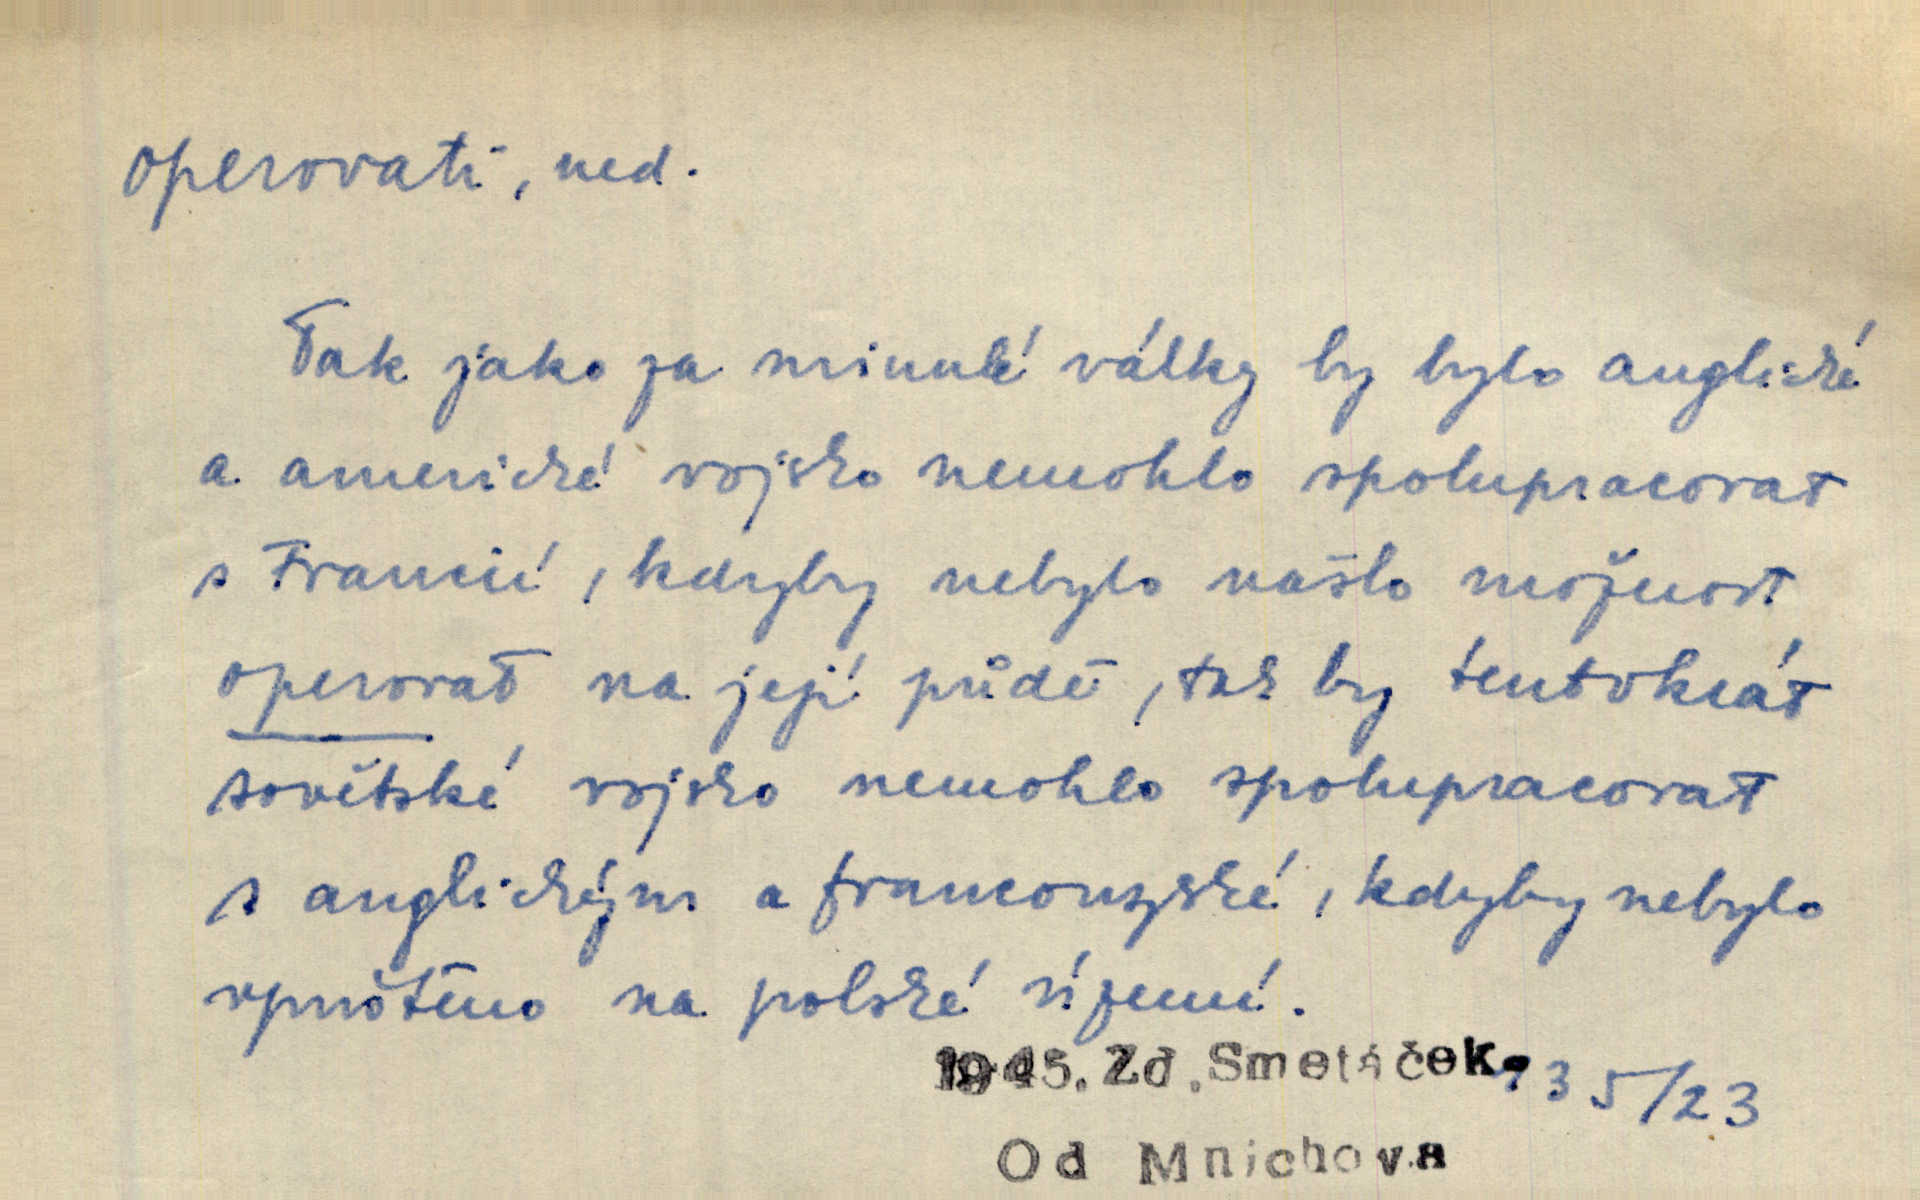 operovati, ned.
Tak jako za minulé války by bylo anglické
a americké vojsko nemohlo spolupracovat
s Francií, kdyby nebylo našlo možnost
operovat na její půdě, tak by tentokrát
sovětské vojsko nemohlo spolupracovat
s anglickým a francouzské, kdyby nebylo
vpuštěno na polské území.
1945. Zd. Smetáček. 35/23
Od Mnichova